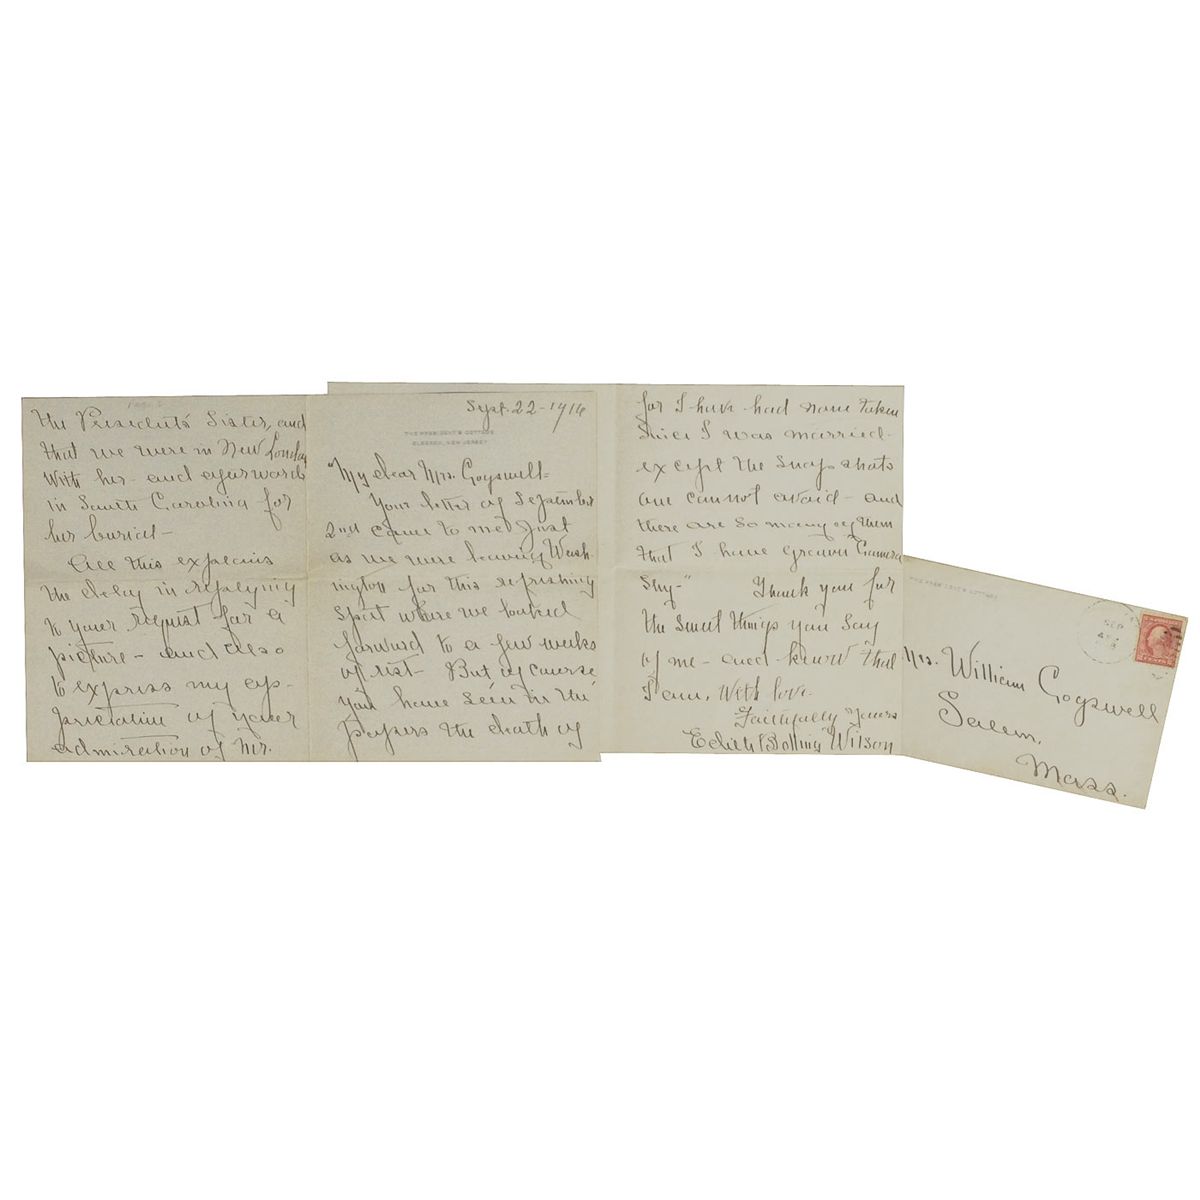 Sept. 22-1916
THE PRESIDENT'S COTTAGE
ELBERON, NEW JERSEY
"My dear Mrs. Gogswell-
Your letter of September
2nd came to me just
as we were leaving Wash-
ington for this refreshing
spot where we looked
forward to a few weeks
of rest- But of course
you have seen in the
papers the death of
the President's Sister, and
that we were in New London
with her- and afterwards
in South Carolina for
her burial-
All this explains
the delay in replying
to your request for a
picture- and also
to express my ap-
preciation of your
admiration of Mr.
for I have had none taken
since I was married-
except the snap shots
one cannot avoid- and
there are so many of them
that I have grown "Camera
Shy-" Thank you for
the sweet things you say
of me- and know that
I am, with love-
Faithfully yours
Edith Bolling Wilson
THE PRESIDENT'S COTTAGE
SEP
Mrs. William Gogswell
Salem,
Mass.